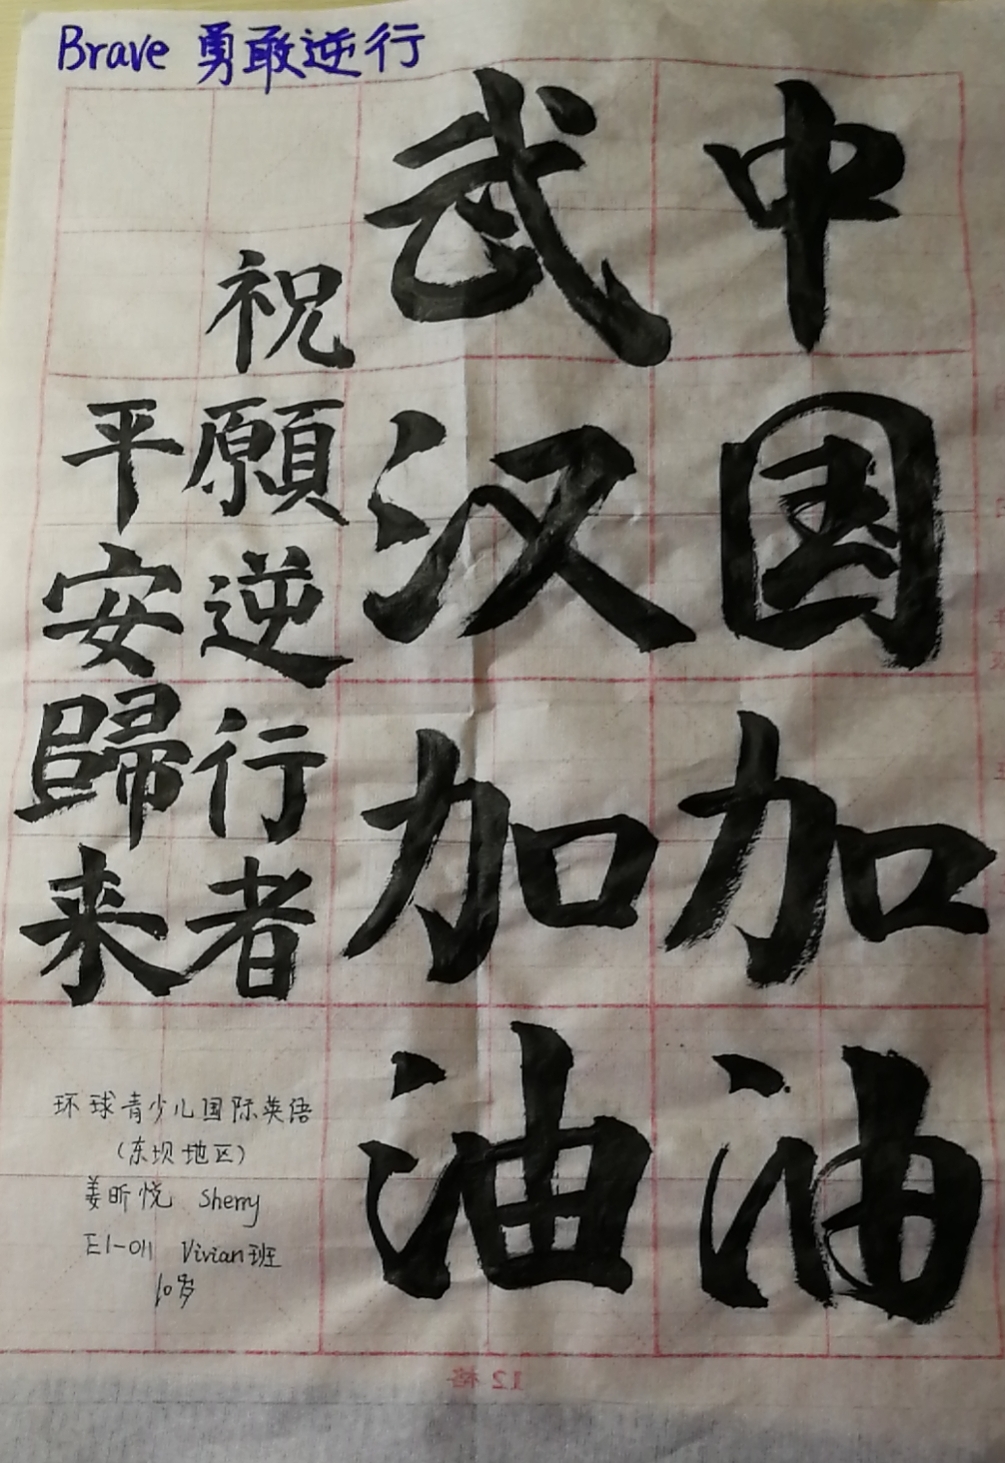 Brave 勇敢逆行
中国加油
武汉加油
祝願逆行者
平安歸来
环球青少儿国际英语
(东坝地区)
姜昕悦 Sherry
E1-011 Vivian班
10岁
12格